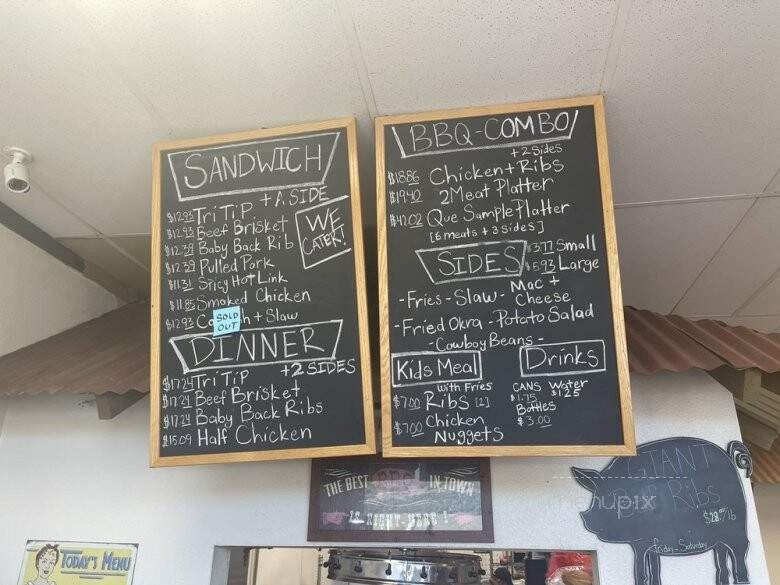 SANDWICH
+ A SIDE
$12.93 Tri Tip
$12.93 Beef Brisket
$12.39 Baby Back Rib
$12.39 Pulled Pork
$11.31 Spicy Hot Link
$11.85 Smoked Chicken
$12.93 + Slaw
SOLD
OUT
WE
CATER!
DINNER
+2 SIDES
$17.24 Tri Tip
$17.24 Beef Brisket
$17.24 Baby Back Ribs
$15.09 Half Chicken
BBQ-COMBO
+ 2 Sides
$18.86 Chicken + Ribs
$19.40 2 Meat Platter
$42.02 Que Sample Platter
[6 meats + 3 sides]
SIDES
$3.77 Small
$5.93 Large
- Fries - Slaw - Mac +
Cheese
- Fried Okra - Potato Salad
- Cowboy Beans -
Kids Meal
with Fries
$7.00 Ribs [2]
$7.00 Chicken
Nuggets
Drinks
CANS
$1.75
Water
$1.25
Bottles
$3.00
THE BEST BBQ IN TOWN
GIANT
Ribs
/lb
Friday - Saturday
TODAY'S MENU
menupix